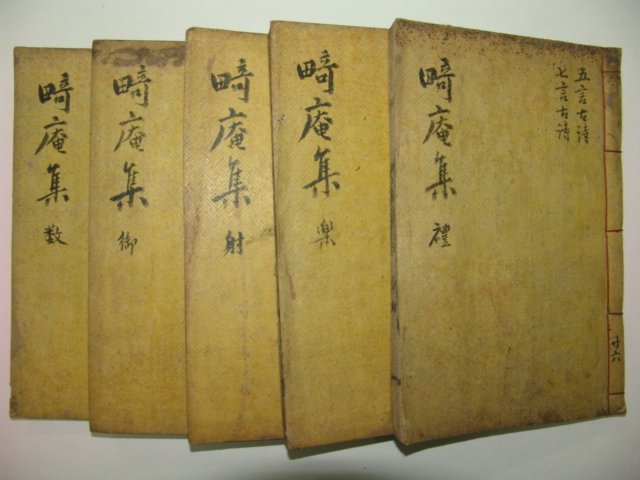 五言古詩
七言古詩
畸庵集 禮
廿六
畸庵集 楽
畸庵集 射
畸庵集 御
畸庵集 数